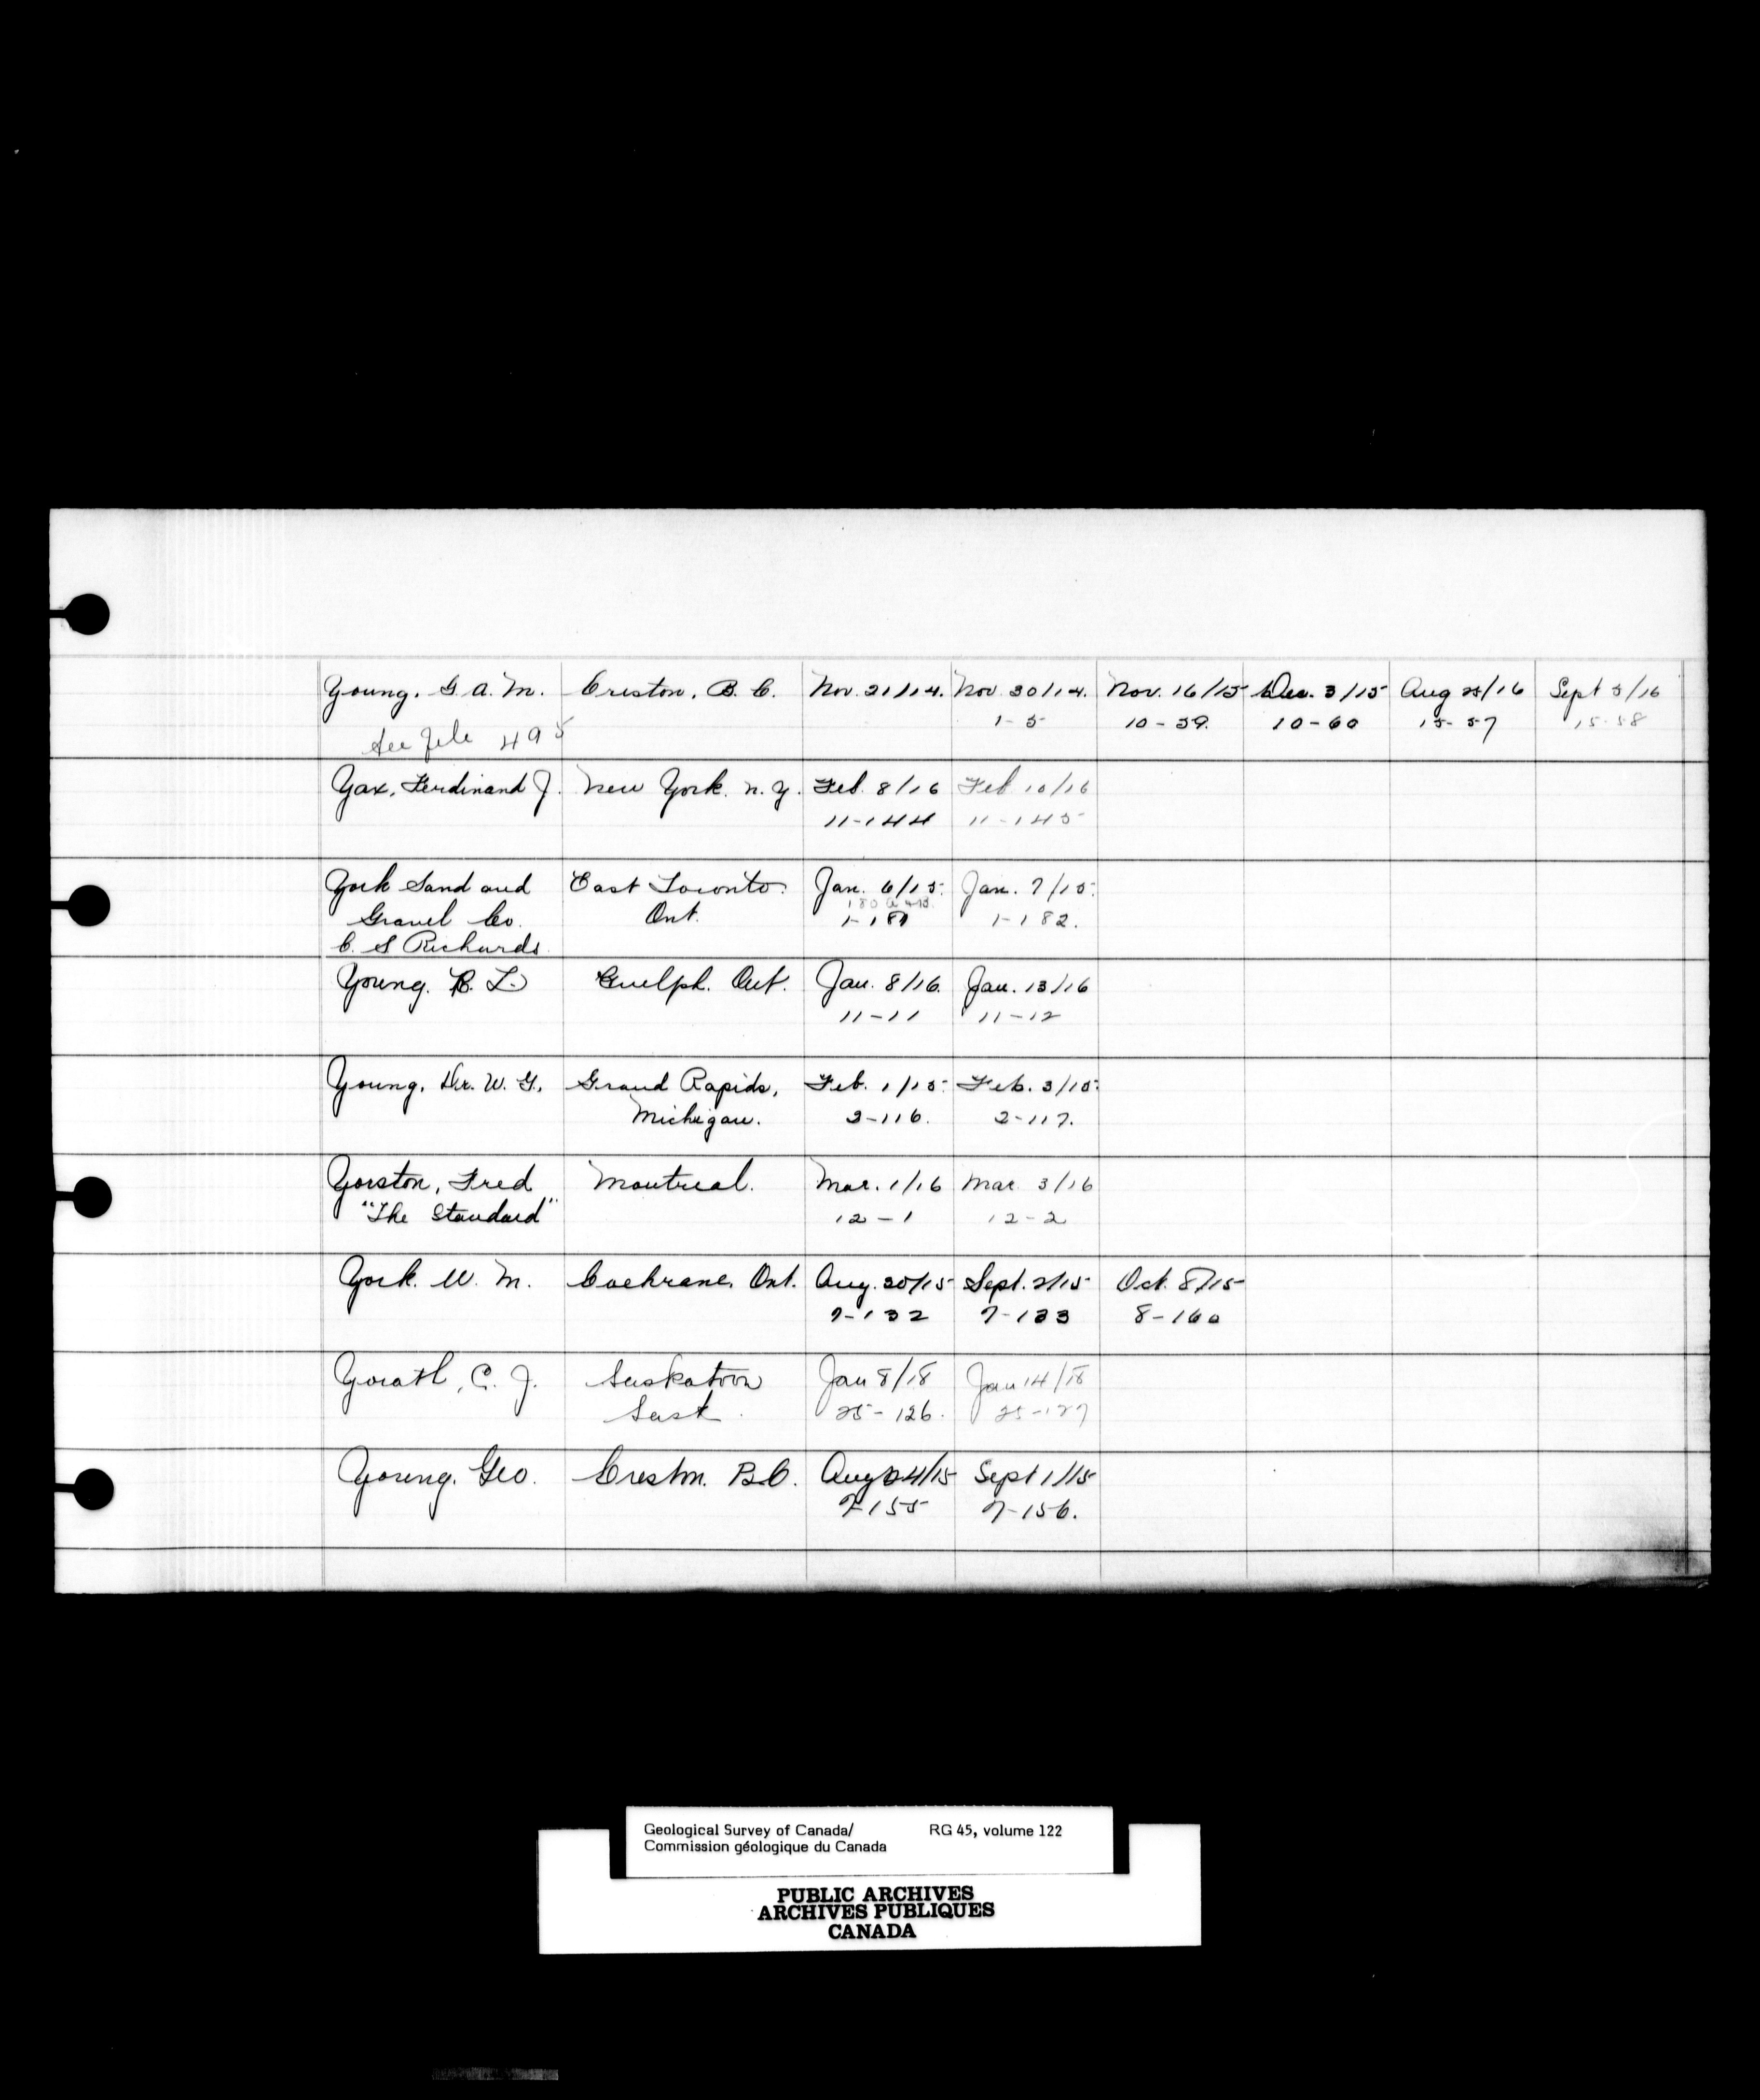 Young. G. A. M. Creston, B. C. Nov. 21/14. Nov 30/14. Nov. 16/15 Dec. 3/15 Aug 25/16 Sept 5/16
1-5 10-59. 10-60 15-57 15-58
See file 495
Yax, Ferdinand J. New York. N. Y. Feb. 8/16 Feb 10/16
11-144 11-145
York Sand and East Toronto. Jan. 6/15. Jan. 7/15.
Gravel Co. Ont. 1-181 1-182.
C. S Richards
Young. R. L. Guelph. Ont. Jan. 8/16. Jan. 13/16
11-11 11-12
Young. Dr. W. G. Grand Rapids, Feb. 1/15. Feb. 3/15.
Michigan. 2-116. 2-117.
Yorston, Fred Montreal. Mar. 1/16 Mar. 3/16
"The Standard" 12-1 12-2
York. W. M. Cochrane, Ont. Aug. 20/15 Sept. 2/15 Oct. 8/15
7-132 7-133 8-160
Yorath, C. J. Saskatoon Jan 8/18 Jan 14/18
Sask. 25-126. 25-127
Young. Geo. Creston. B.C. Aug 24/15 Sept 1/15
7-155 7-156.
Geological Survey of Canada/ RG 45, volume 122
Commission géologique du Canada
PUBLIC ARCHIVES
ARCHIVES PUBLIQUES
CANADA